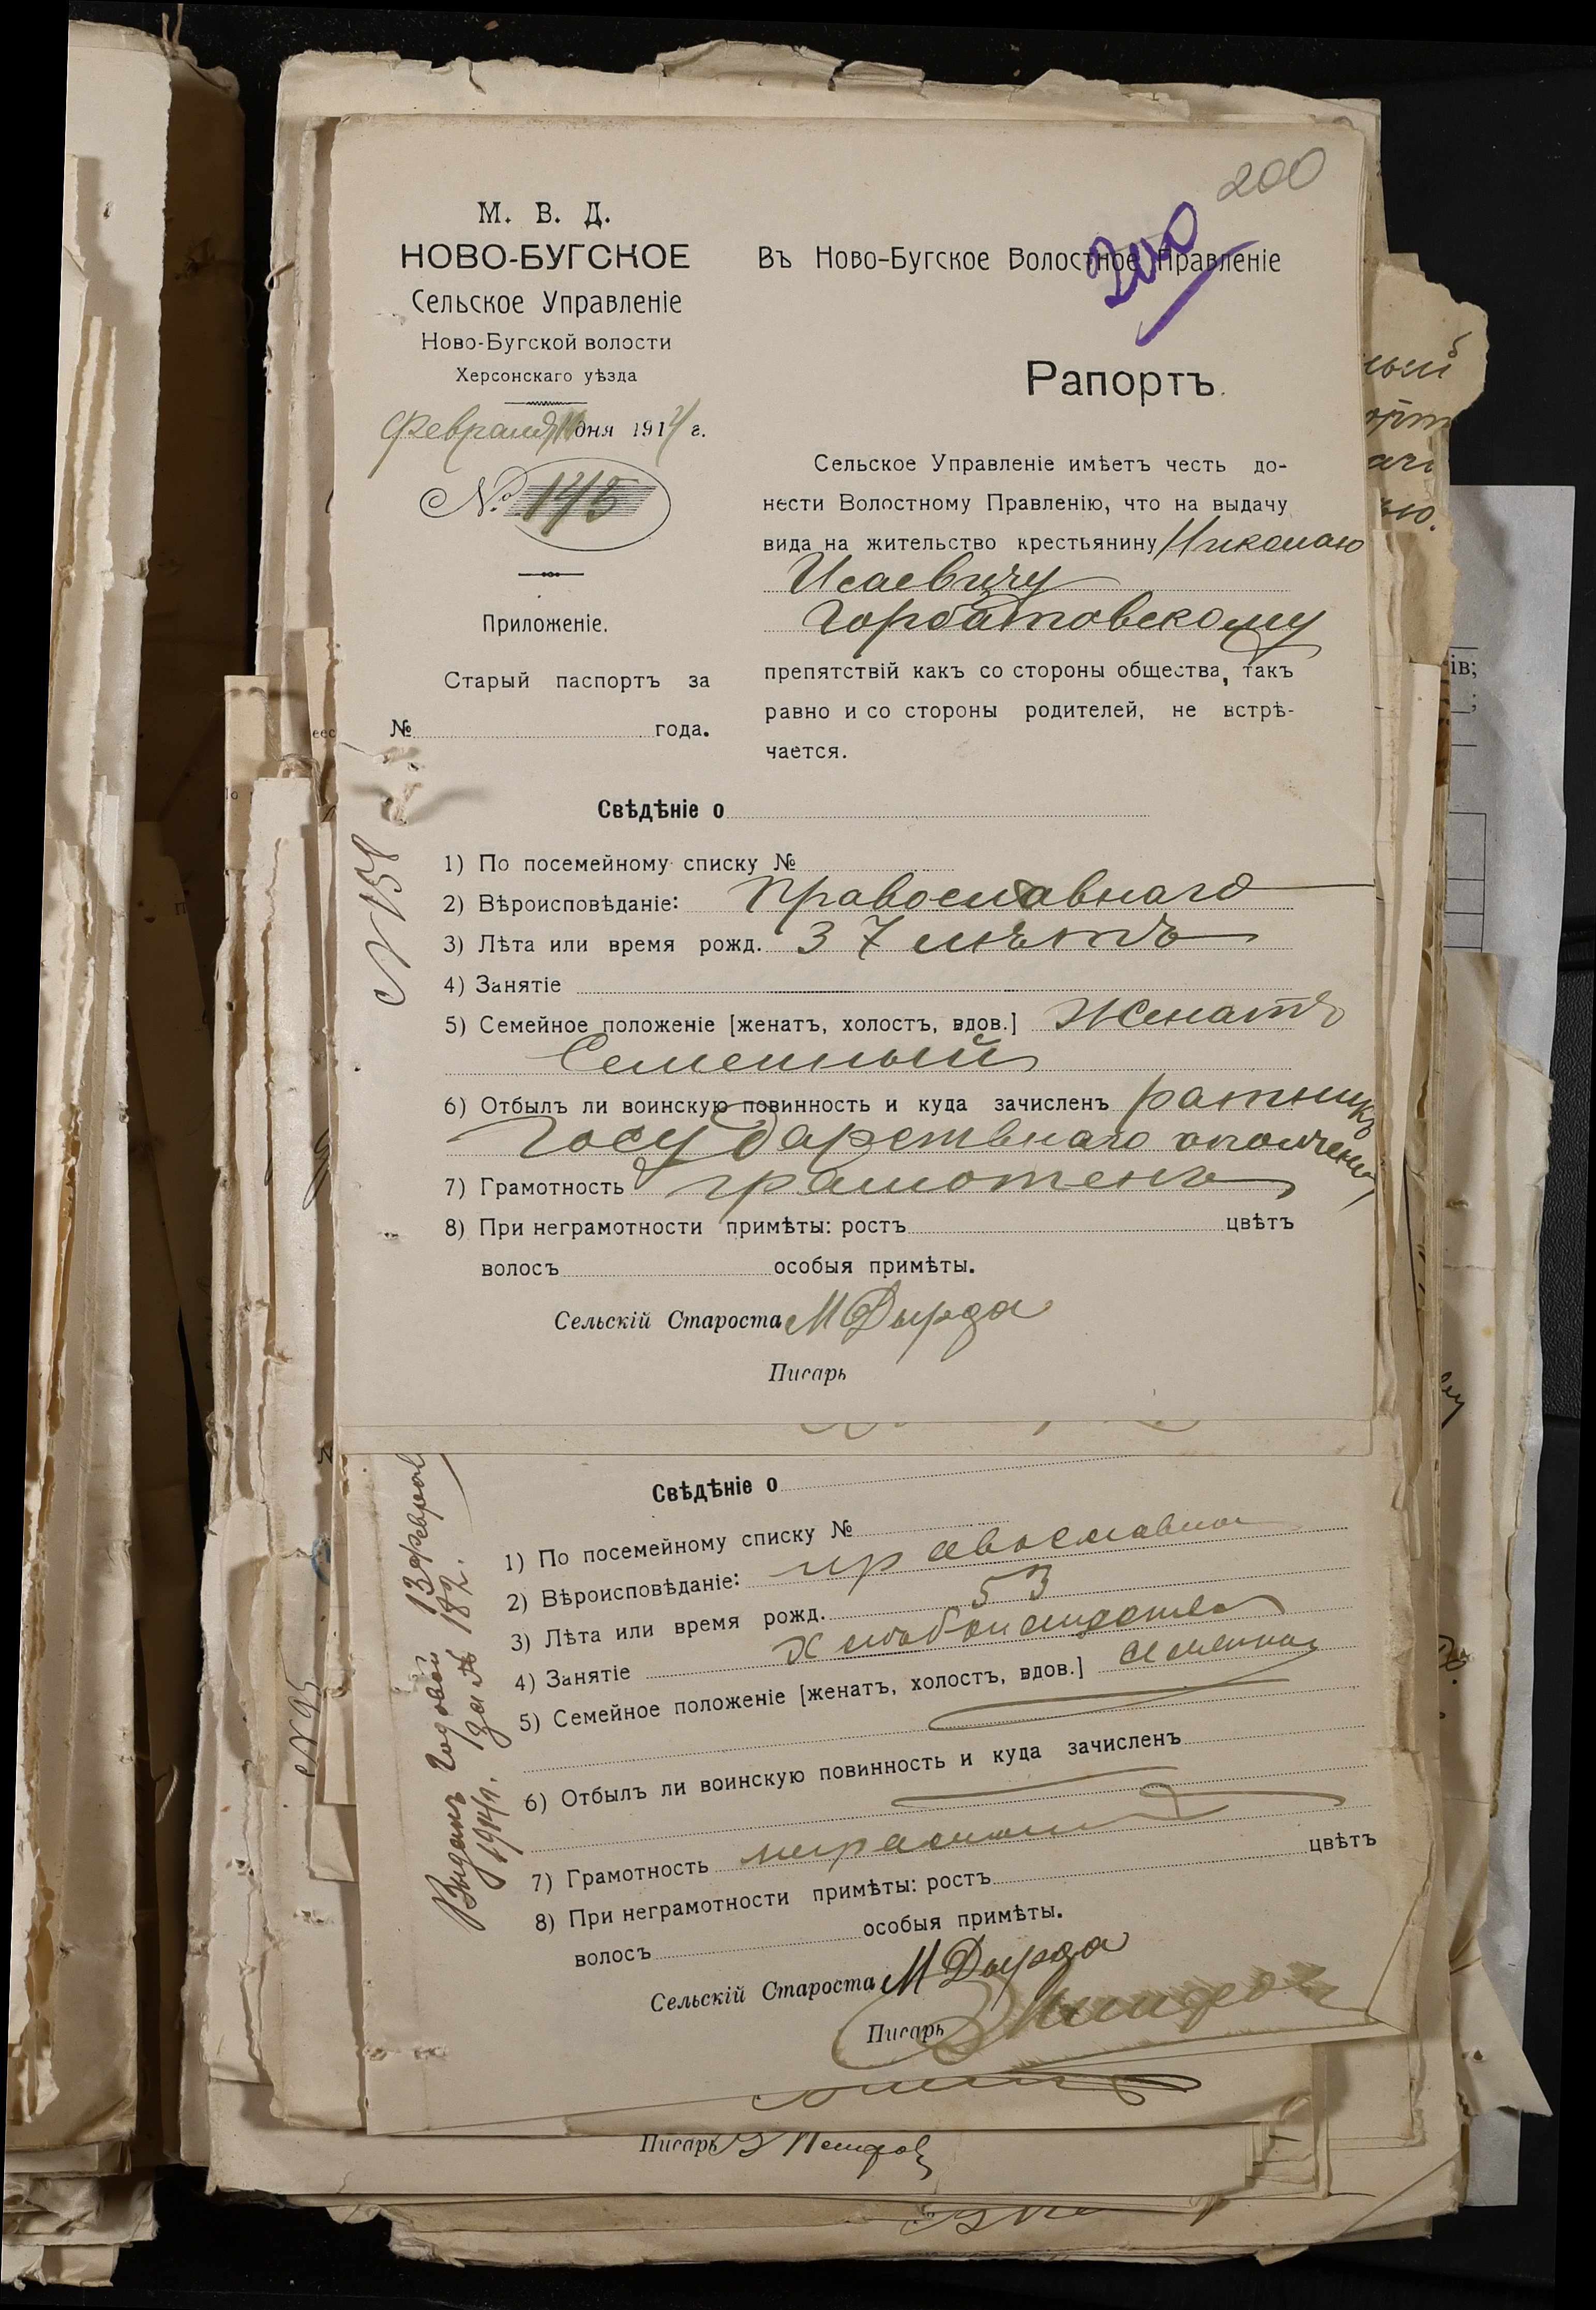 200
200
М. В. Д.
НОВО-БУГСКОЕ
Сельское Управленіе
Ново-Бугской волости
Херсонскаго уѣзда
Февраля дня 1914 г.
№ 145
Приложеніе.
Старый паспортъ за
№ года.
Въ Ново-Бугское Волостное Правленіе
Рапортъ.
Сельское Управленіе имѣетъ честь до-
нести Волостному Правленію, что на выдачу
вида на жительство крестьянину Николаю
Исаевичу
Горбатовскому
препятствій какъ со стороны общества, такъ
равно и со стороны родителей, не встрѣ-
чается.
№ 158
Свѣдѣніе о
1) По посемейному списку №
2) Вѣроисповѣданіе: Православнаго
3) Лѣта или время рожд. 37 лѣтъ
4) Занятіе
5) Семейное положеніе [женатъ, холостъ, вдов.] Женатъ
Семейный
6) Отбылъ ли воинскую повинность и куда зачисленъ ратникъ
Государственаго ополченія
7) Грамотность грамотенъ
8) При неграмотности примѣты: ростъ цвѣтъ
волосъ особыя примѣты.
Сельскій Староста М Дырда
Писарь
Свѣдѣніе о
1) По посемейному списку №
2) Вѣроисповѣданіе: православна
3) Лѣта или время рожд. 53
4) Занятіе
5) Семейное положеніе [женатъ, холостъ, вдов.]
6) Отбылъ ли воинскую повинность и куда зачисленъ
7) Грамотность
8) При неграмотности примѣты: ростъ цвѣтъ
волосъ особыя примѣты.
Сельскій Староста М Дырда
Писарь
Выданъ годовой 13 феврал
1914 г. за № 182.
№ 95
Писарь